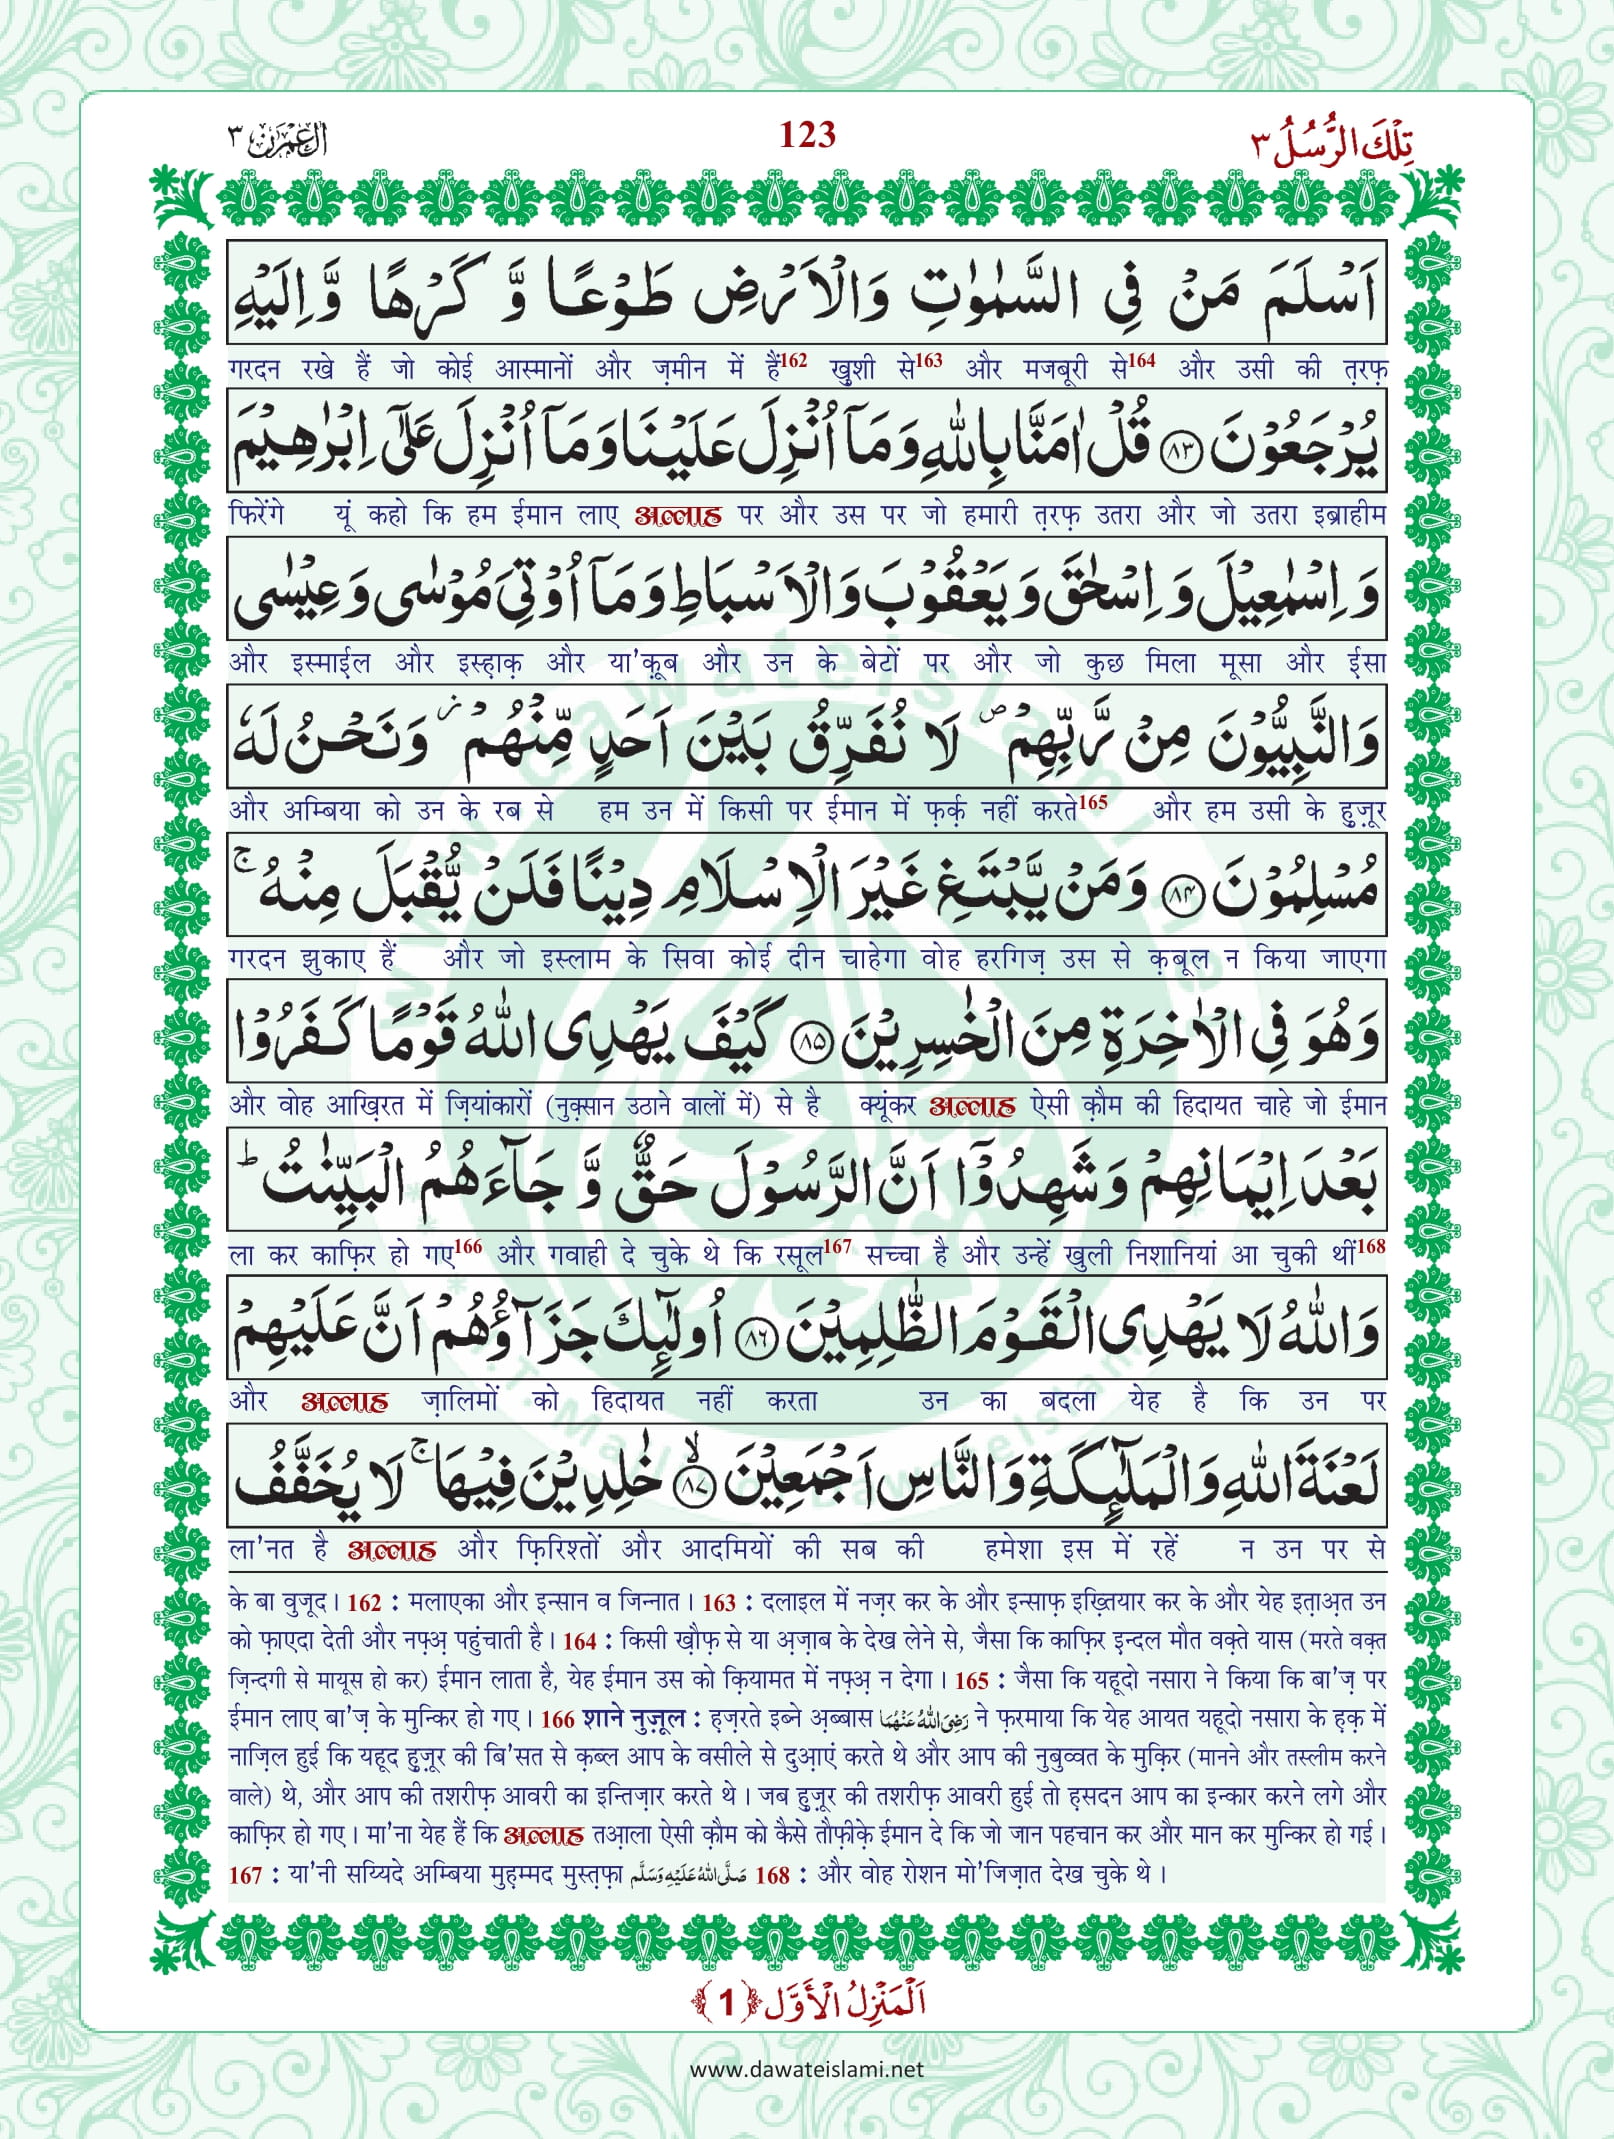 اٰل عمرٰن ٣
123
تِلْكَ الرُّسُلُ ٣
اَسْلَمَ مَنْ فِى السَّمٰوٰتِ وَالْاَرْضِ طَوْعًا وَّ كَرْهًا وَّ اِلَيْهِ
गरदन रखे हैं जो कोई आस्मानों और ज़मीन में हैं162 खुशी से163 और मजबूरी से164 और उसी की त़रफ़
يُرْجَعُوْنَ ﴿٨٣﴾ قُلْ اٰمَنَّا بِاللّٰهِ وَ مَاۤ اُنْزِلَ عَلَيْنَا وَ مَاۤ اُنْزِلَ عَلٰۤى اِبْرٰهِيْمَ
फिरेंगे यूं कहो कि हम ईमान लाए अल्लाह पर और उस पर जो हमारी त़रफ़ उतरा और जो उतरा इब्राहीम
وَ اِسْمٰعِيْلَ وَ اِسْحٰقَ وَ يَعْقُوْبَ وَالْاَسْبَاطِ وَ مَاۤ اُوْتِىَ مُوْسٰى وَ عِيْسٰى
और इस्माईल और इस्ह़ाक़ और या'क़ूब और उन के बेटों पर और जो कुछ मिला मूसा और ईसा
وَالنَّبِيُّوْنَ مِنْ رَّبِّهِمْ ۪ لَا نُفَرِّقُ بَيْنَ اَحَدٍ مِّنْهُمْ ۫ وَ نَحْنُ لَهٗ
और अम्बिया को उन के रब से हम उन में किसी पर ईमान में फ़र्क़ नहीं करते165 और हम उसी के हु़ज़ूर
مُسْلِمُوْنَ ﴿٨٤﴾ وَ مَنْ يَّبْتَغِ غَيْرَ الْاِسْلَامِ دِيْنًا فَلَنْ يُّقْبَلَ مِنْهُ ۚ
गरदन झुकाए हैं और जो इस्लाम के सिवा कोई दीन चाहेगा वोह हरगिज़ उस से क़बूल न किया जाएगा
وَ هُوَ فِى الْاٰخِرَةِ مِنَ الْخٰسِرِيْنَ ﴿٨٥﴾ كَيْفَ يَهْدِى اللّٰهُ قَوْمًا كَفَرُوْا
और वोह आख़िरत में ज़ियांकारों (नुक़्सान उठाने वालों में) से है क्यूंकर अल्लाह ऐसी क़ौम की हिदायत चाहे जो ईमान
بَعْدَ اِيْمَانِهِمْ وَ شَهِدُوْۤا اَنَّ الرَّسُوْلَ حَقٌّ وَّ جَآءَهُمُ الْبَيِّنٰتُ ؕ
ला कर काफ़िर हो गए166 और गवाही दे चुके थे कि रसूल167 सच्चा है और उन्हें खुली निशानियां आ चुकी थीं168
وَاللّٰهُ لَا يَهْدِى الْقَوْمَ الظّٰلِمِيْنَ ﴿٨٦﴾ اُولٰٓئِكَ جَزَآؤُهُمْ اَنَّ عَلَيْهِمْ
और अल्लाह ज़ालिमों को हिदायत नहीं करता उन का बदला येह है कि उन पर
لَعْنَةَ اللّٰهِ وَالْمَلٰٓئِكَةِ وَالنَّاسِ اَجْمَعِيْنَ ۙ﴿٨٧﴾ خٰلِدِيْنَ فِيْهَا ۚ لَا يُخَفَّفُ
ला'नत है अल्लाह और फ़िरिश्तों और आदमियों की सब की हमेशा इस में रहें न उन पर से
के बा वुजूद। 162 : मलाएका और इन्सान व जिन्नात। 163 : दलाइल में नज़र कर के और इन्साफ़ इख़्तियार कर के और येह इत़ाअ़त उन
को फ़ाएदा देती और नफ़्अ़ पहुंचाती है। 164 : किसी ख़ौफ़ से या अ़ज़ाब के देख लेने से, जैसा कि काफ़िर इन्दल मौत वक़्ते यास (मरते वक़्त
ज़िन्दगी से मायूस हो कर) ईमान लाता है, येह ईमान उस को क़ियामत में नफ़्अ़ न देगा। 165 : जैसा कि यहूदो नसारा ने किया कि बा'ज़ पर
ईमान लाए बा'ज़ के मुन्किर हो गए। 166 शाने नुज़ूल : ह़ज़रते इब्ने अ़ब्बास رَضِىَ اللّٰهُ عَنْهُمَا ने फ़रमाया कि येह आयत यहूदो नसारा के ह़क़ में
नाज़िल हुई कि यहूद हु़ज़ूर की बि'सत से क़ब्ल आप के वसीले से दुआ़एं करते थे और आप की नुबुव्वत के मुक़िर (मानने और तस्लीम करने
वाले) थे, और आप की तशरीफ़ आवरी का इन्तिज़ार करते थे। जब हु़ज़ूर की तशरीफ़ आवरी हुई तो ह़सदन आप का इन्कार करने लगे और
काफ़िर हो गए। मा'ना येह हैं कि अल्लाह तआ़ला ऐसी क़ौम को कैसे तौफ़ीक़े ईमान दे कि जो जान पहचान कर और मान कर मुन्किर हो गई।
167 : या'नी सय्यिदे अम्बिया मुह़म्मद मुस्त़फ़ा صَلَّى اللّٰهُ عَلَيْهِ وَسَلَّم 168 : और वोह रोशन मो'जिज़ात देख चुके थे।
اَلْمَنْزِلُ الْاَوَّل ﴿1﴾
www.dawateislami.net